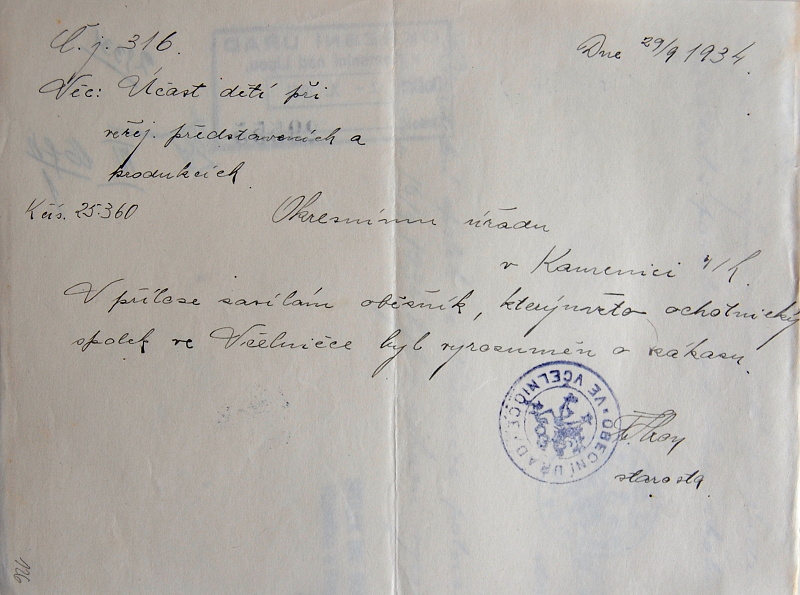 Č. j. 316.
Dne 29/9 1934.
Věc: Účast dětí při
veřej. představeních a
produkcích.
K čís. 25.360
Okresnímu úřadu
v Kamenici n/L.
V příloze zasílám oběžník, kterýmžto ochotnický
spolek ve Včelničce byl vyrozuměn o zákazu.
OBECNÍ ÚŘAD VE VČELNIČCE
starosta.
126